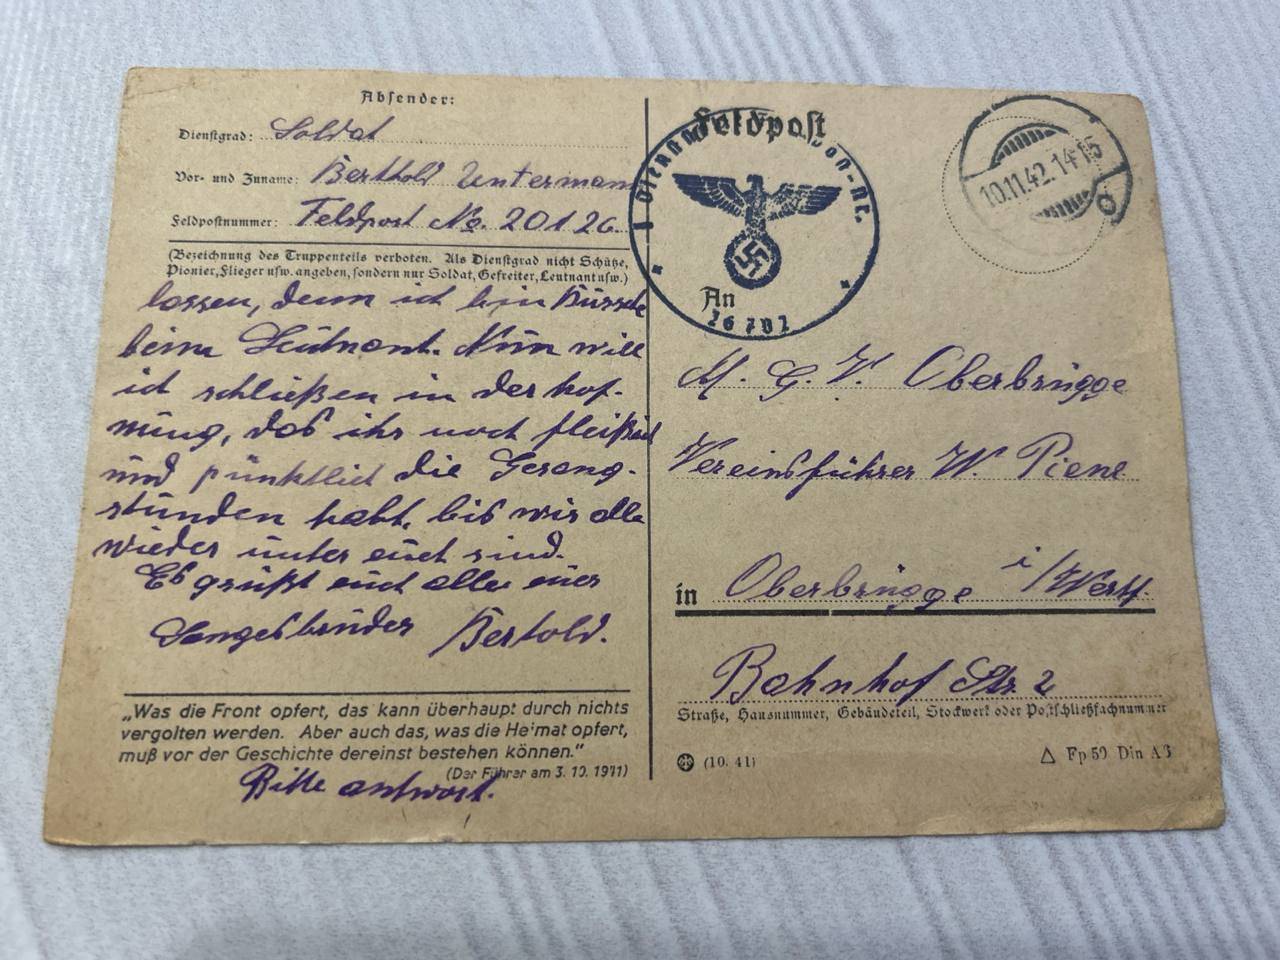 Absender:
Dienstgrad: Soldat
Vor- und Zuname: Berthold Untermann
Feldpostnummer: Feldpost No. 20126
(Bezeichnung des Truppenteils verboten. Als Dienstgrad nicht Schütze,
Pionier, Flieger usw. angeben, sondern nur Soldat, Gefreiter, Leutnant usw.)
lassen, denn ich bin Bursche
beim Leutnant. Nun will
ich schließen in der hof-
nung, das ihr noch fleißich
und pünktlich die Gesang-
stunden habt, bis wir alle
wieder unter euch sind.
Es grüßt euch alle euer
Sangesbruder Bertold.
„Was die Front opfert, das kann überhaupt durch nichts
vergolten werden. Aber auch das, was die Heimat opfert,
muß vor der Geschichte dereinst bestehen können.“
(Der Führer am 3. 10. 1941)
Bitte antwort.
Feldpost
An
26702
10.11.42.14-15
d
M. G. V. Oberbrügge
Vereinsführer W. Piene
in Oberbrügge i/Westf.
Bahnhof Str. 2
Straße, Hausnummer, Gebäudeteil, Stockwerk oder Postschließfachnummer
(10. 41)
Fp 50 Din A 6